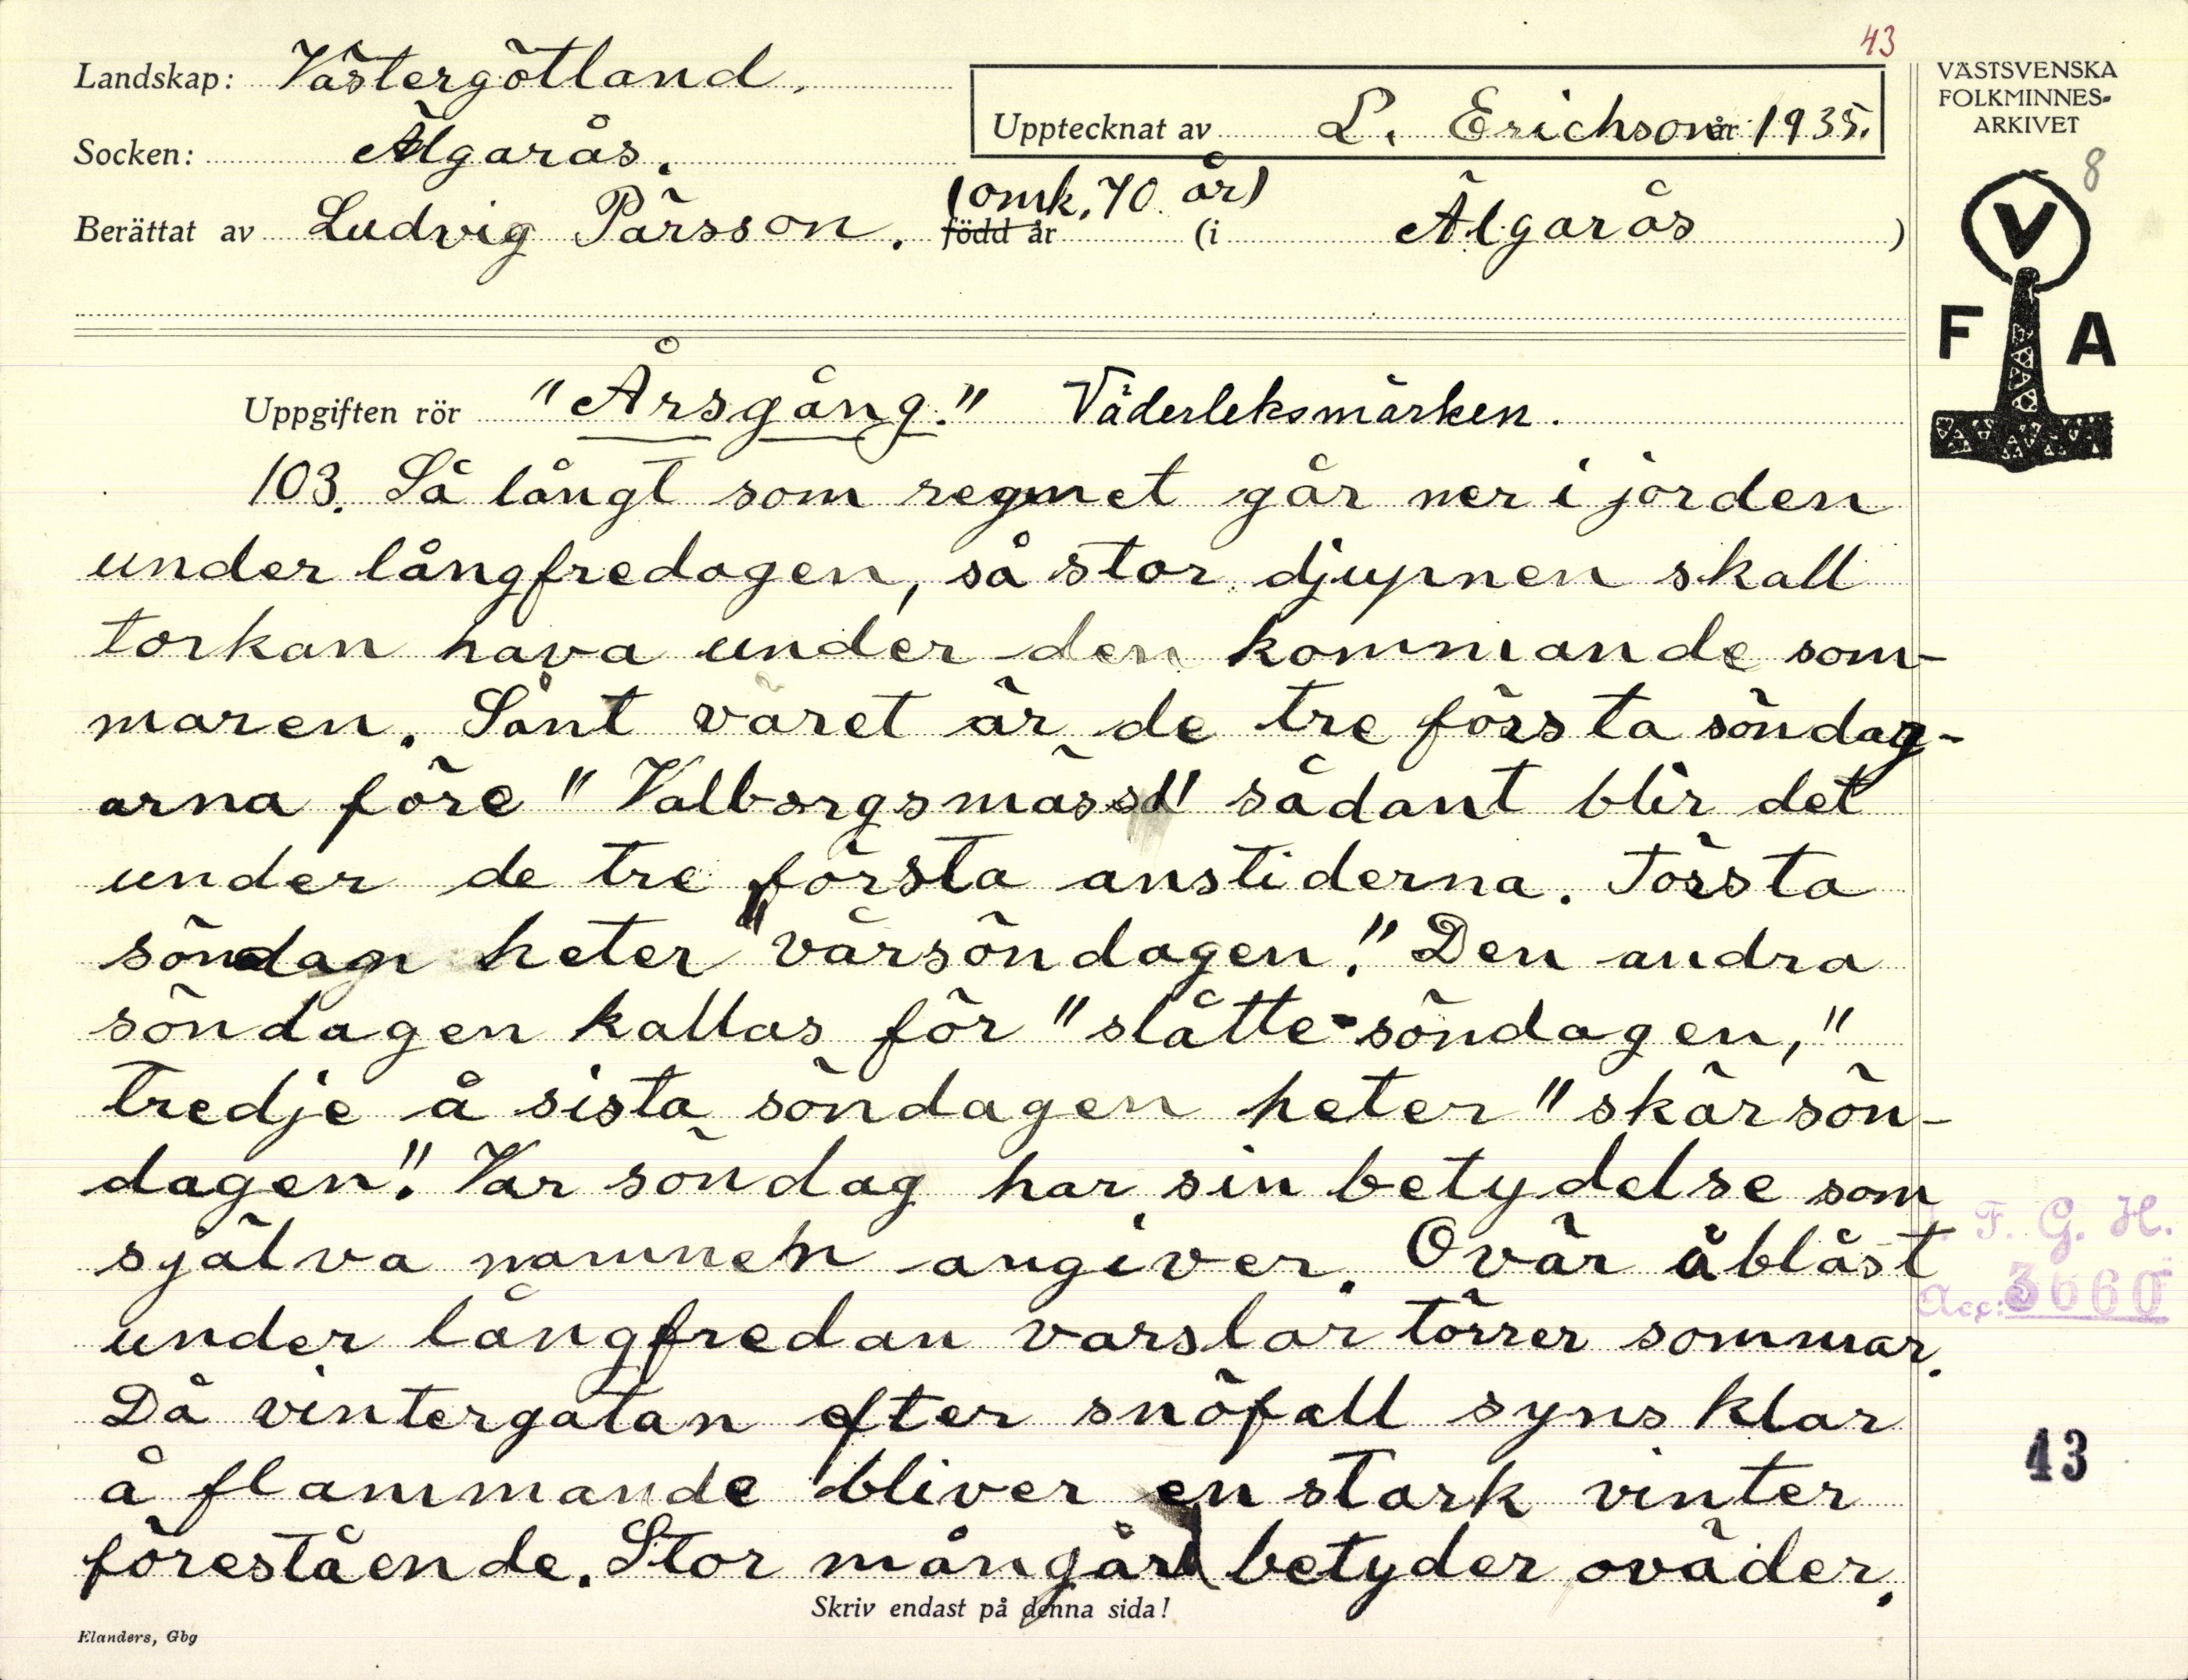 43
Landskap: Västergötland.
Socken: Älgarås.
Upptecknat av L. Erichson år 1935.
Berättat av Ludvig Pärsson. född år (omk. 70 år) (i Älgarås)
VÄSTSVENSKA
FOLKMINNES-
ARKIVET
8
V
F A
Uppgiften rör "Årsgång." Väderleksmärken.
103. Så långt som regnet går ner i jorden
under långfredagen, så stor djupnen skall
torkan hava under den kommande som-
maren. Sånt väret är de tre förs ta söndag-
arna före "Valborgsmässa" sådant blir det
under de tre första anstiderna. Första
söndagn heter "vårsöndagen." Den andra
söndagen kallas för "slåtte-söndagen,"
tredje å sista söndagen heter "skärsön-
dagen". Var söndag har sin betydelse som
själva namnen angiver. Ovär å blåst
under långfredan varslar törrer sommar.
Då vintergatan efter snöfall syns klar
å flammande bliver en stark vinter
förestående. Stor mångård betyder oväder.
Skriv endast på denna sida!
Elanders, Gbg
I. F. G. H.
Acc: 3660
43